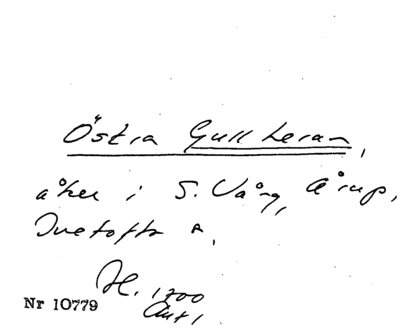 Östra Gullkeran,
åker i S. Vång, Årup,
Ivetofta s.
H. 1700
Akt 1.
Nr 10779